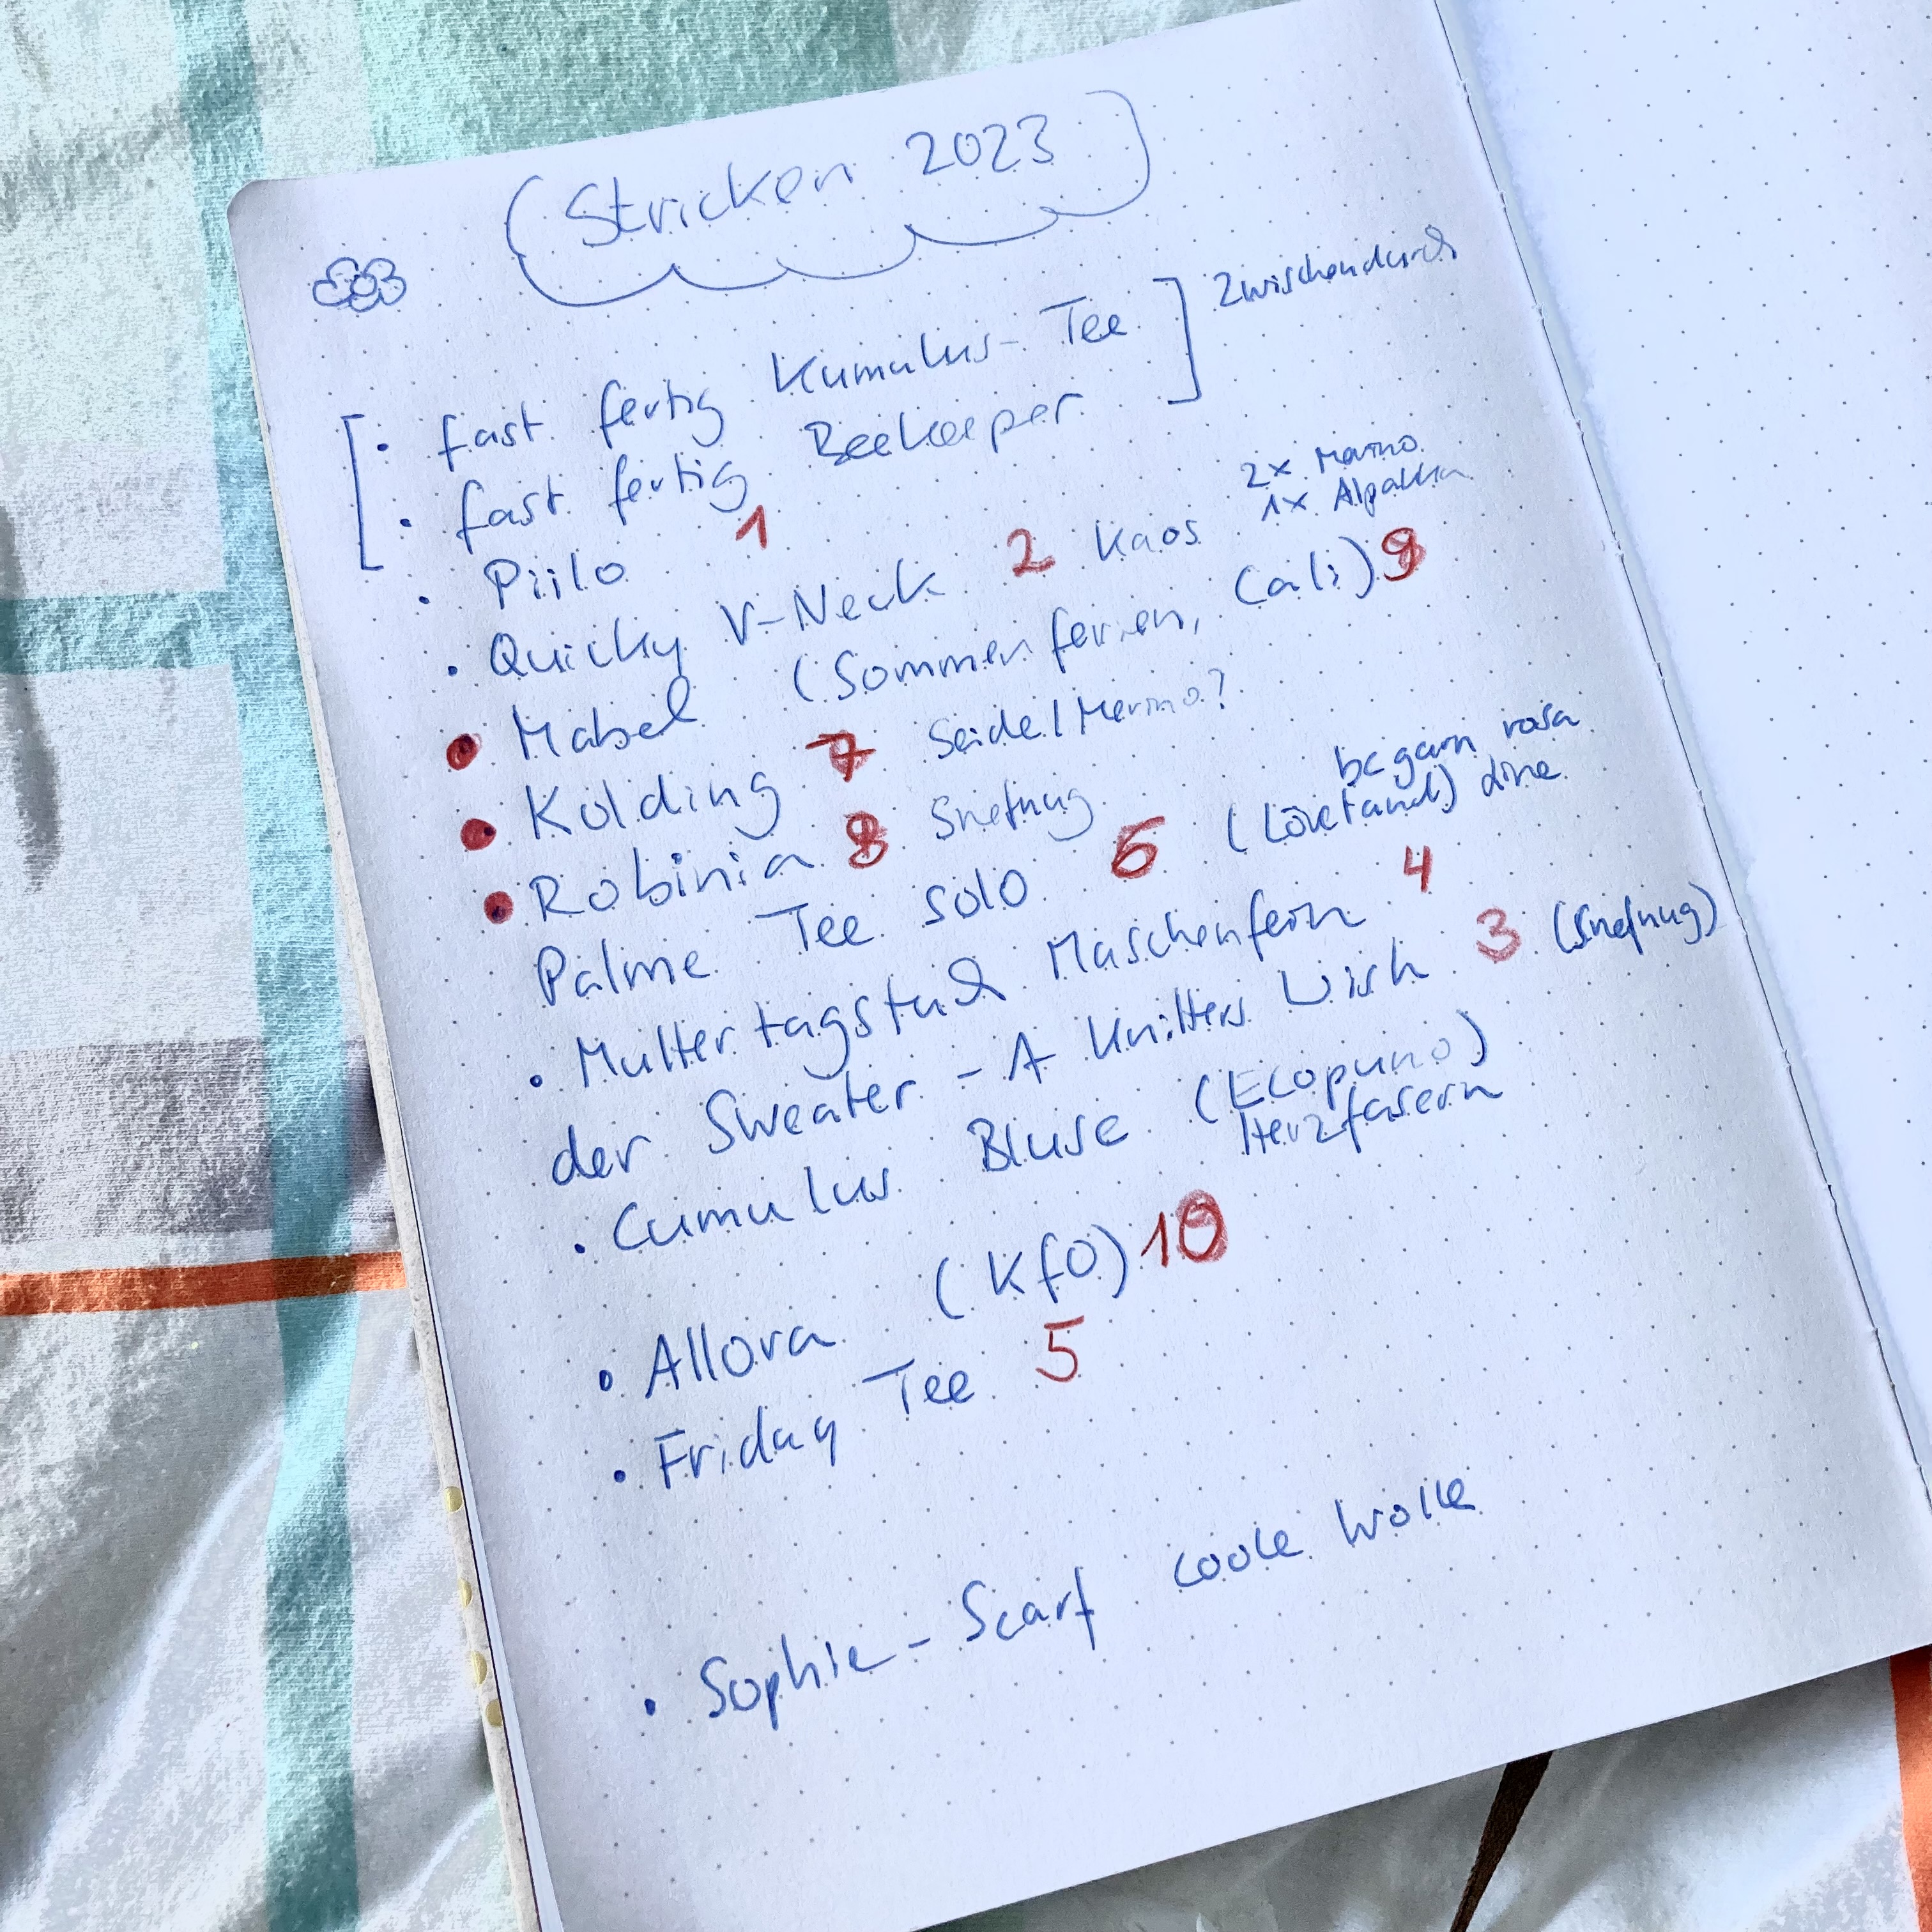 Stricken 2023
fast fertig Kumulus-Tee
Zwischendurch
fast fertig Beekeeper
Piilo 1
Quicky V-Neck 2 Kaos 2x Merino
1x Alpakka
Mabel (Sommerferien, Cali) 9
Kolding 7 Seide/Merino?
Robinia 8 Snefnug
Palme Tee solo 6 (Lövetand) bc garn rosa
Muttertagstuch Maschenfein 4
der Sweater - A Knitters Wish 3 (Snefnug)
Cumulus Bluse (Ecopuno)
Herzfasern
Allora (KfO) 10
Friday Tee 5
Sophie-Scarf coole Wolle